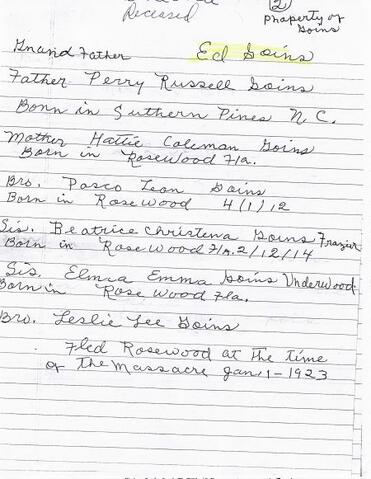 Deceased
(2)
Property of
Goins
Grand Father Ed Goins
Father Perry Russell Goins
Born in Suthern Pines N.C.
Mother Hattie Coleman Goins
Born in Rosewood Fla.
Bro. Pasco Leon Goins
Born in Rosewood 4(1)12
Sis. Beatrice Christena Goins Frazier
Born in Rosewood Fla. 2/12/14
Sis. Elmia Emma Goins Underwood
Born in Rose wood Fla.
Bro. Leslie Lee Goins
Fled Rosewood at the time
of the Massacre Jan, 1-1923